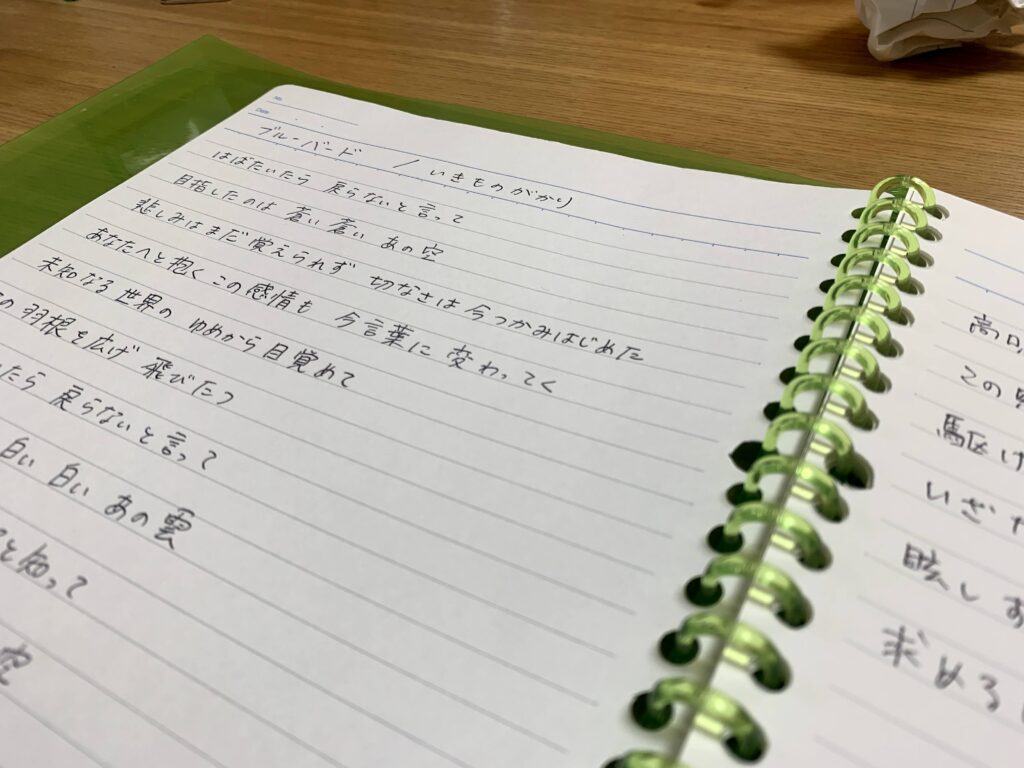 No.
Date
ブルーバード / いきものがかり
はばたいたら 戻らないと言って
目指したのは 蒼い 蒼い あの空
悲しみはまだ覚えられず 切なさは今つかみはじめた
あなたへと抱く この感情も 今言葉に変わってく
未知なる世界の ゆめから目覚めて
の羽根を広げ 飛びたつ
たら 戻らないと言って
白い 白い あの雲
と知って
空
高
この
駆け
いざ
眩し
求める